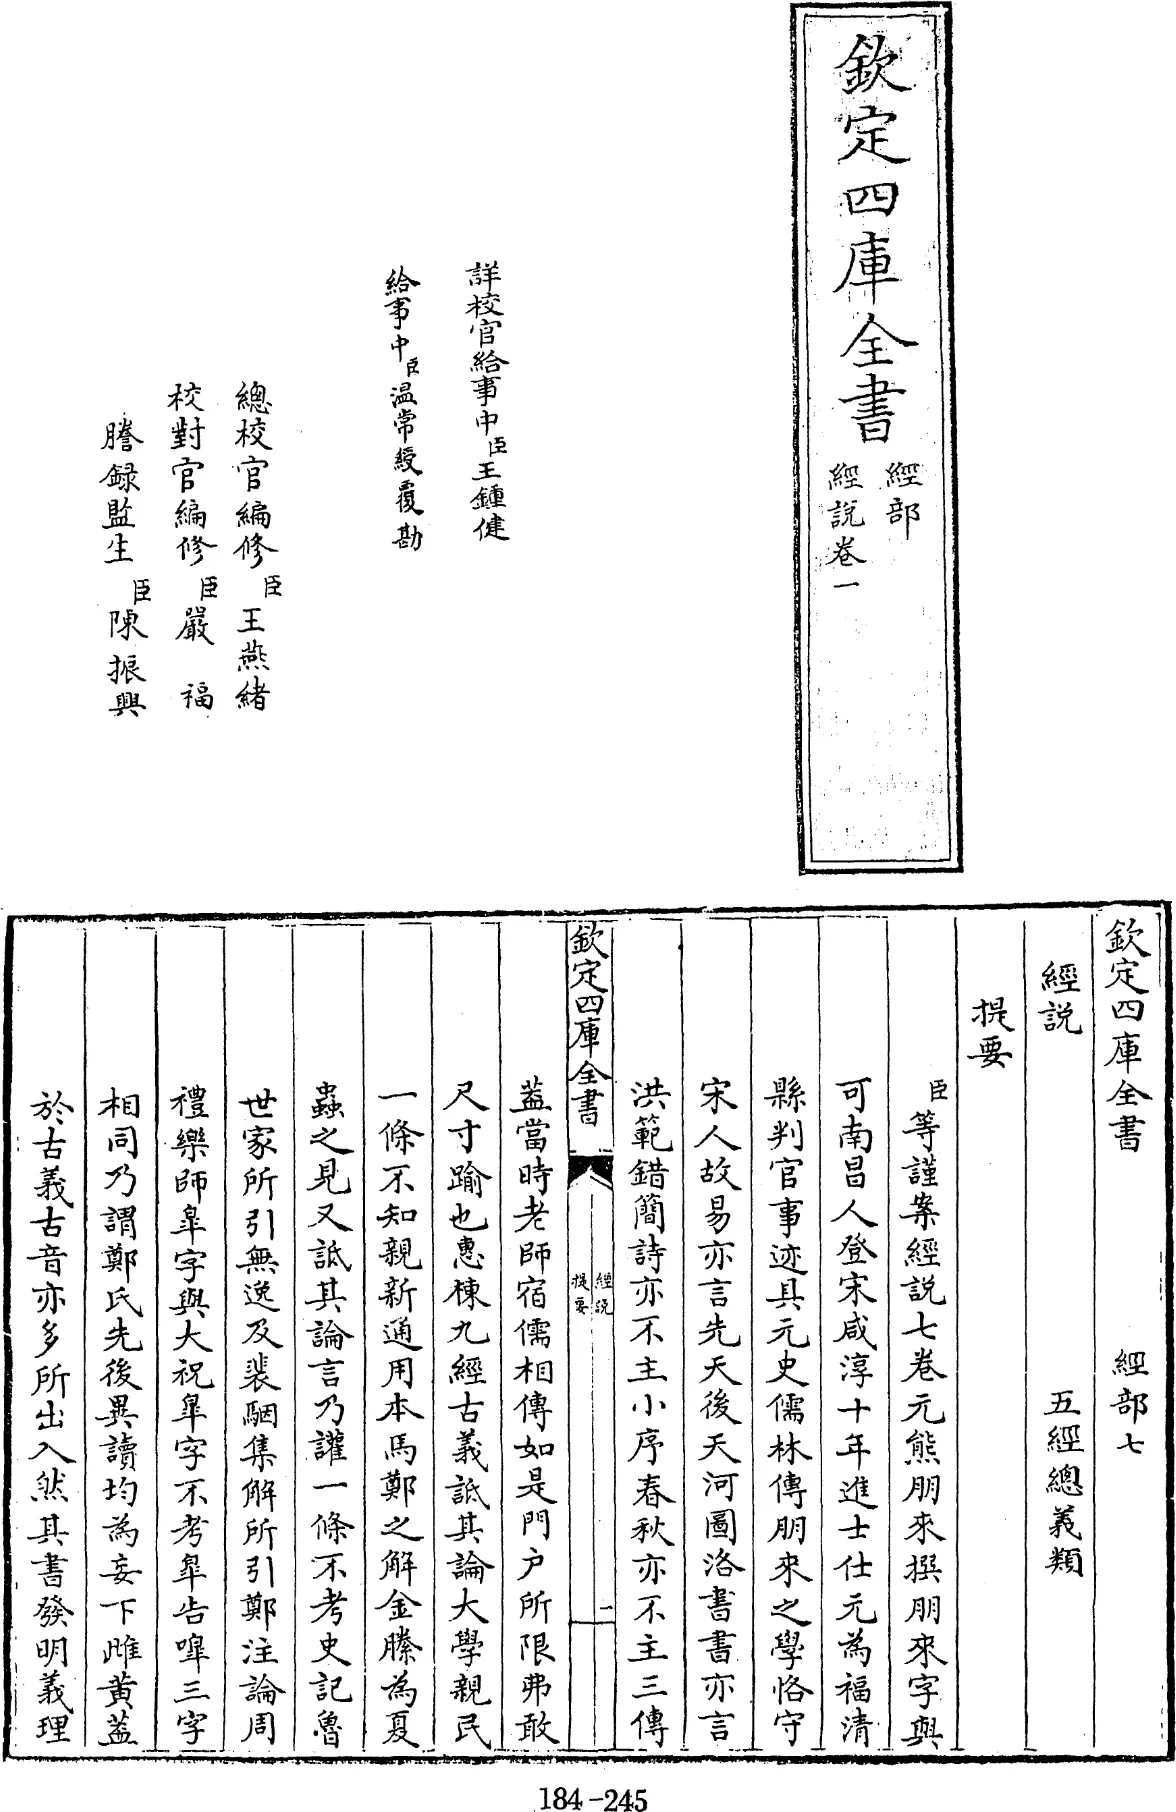 欽定四庫全書
經部
經說卷一
詳校官給事中臣王鍾健
給事中臣温常綬覆勘
總校官編修臣王燕緒
校對官編修臣嚴福
謄録監生臣陳振興
欽定四庫全書 經部七
經説 五經總義類
提要
臣等謹案經説七卷元熊朋來撰朋來字與
可南昌人登宋咸淳十年進士仕元為福清
縣判官事迹具元史儒林傳朋來之學恪守
宋人故易亦言先天後天河圖洛書書亦言
洪範錯簡詩亦不主小序春秋亦不主三傳
欽定四庫全書
經説
提要
一
蓋當時老師宿儒相傳如是門户所限弗敢
尺寸踰也惠棟九經古義詆其論大學親民
一條不知親新通用本馬鄭之解金縢為夏
蟲之見又詆其論言乃讙一條不考史記魯
世家所引無逸及裴駰集解所引鄭注論周
禮樂師臯字與大祝臯字不考臯告嘷三字
相同乃謂鄭氏先後異讀均為妄下雌黄蓋
於古義古音亦多所出入然其書發明義理
184-245